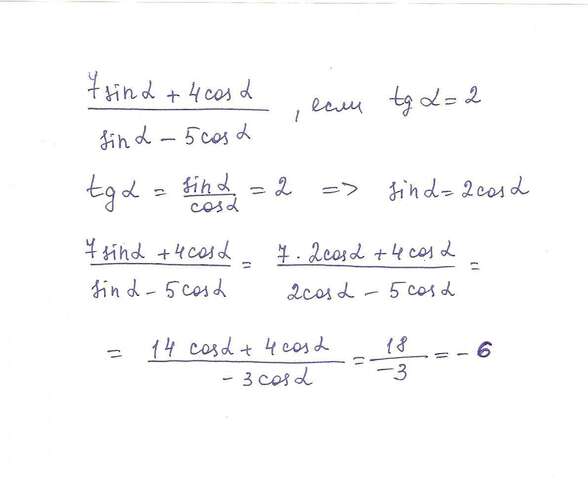 (7 sin α + 4 cos α) / (sin α − 5 cos α), если tg α = 2
tg α = sin α / cos α = 2 => sin α = 2 cos α
(7 sin α + 4 cos α) / (sin α − 5 cos α) = (7 · 2 cos α + 4 cos α) / (2 cos α − 5 cos α) =
= (14 cos α + 4 cos α) / (−3 cos α) = 18 / −3 = − 6